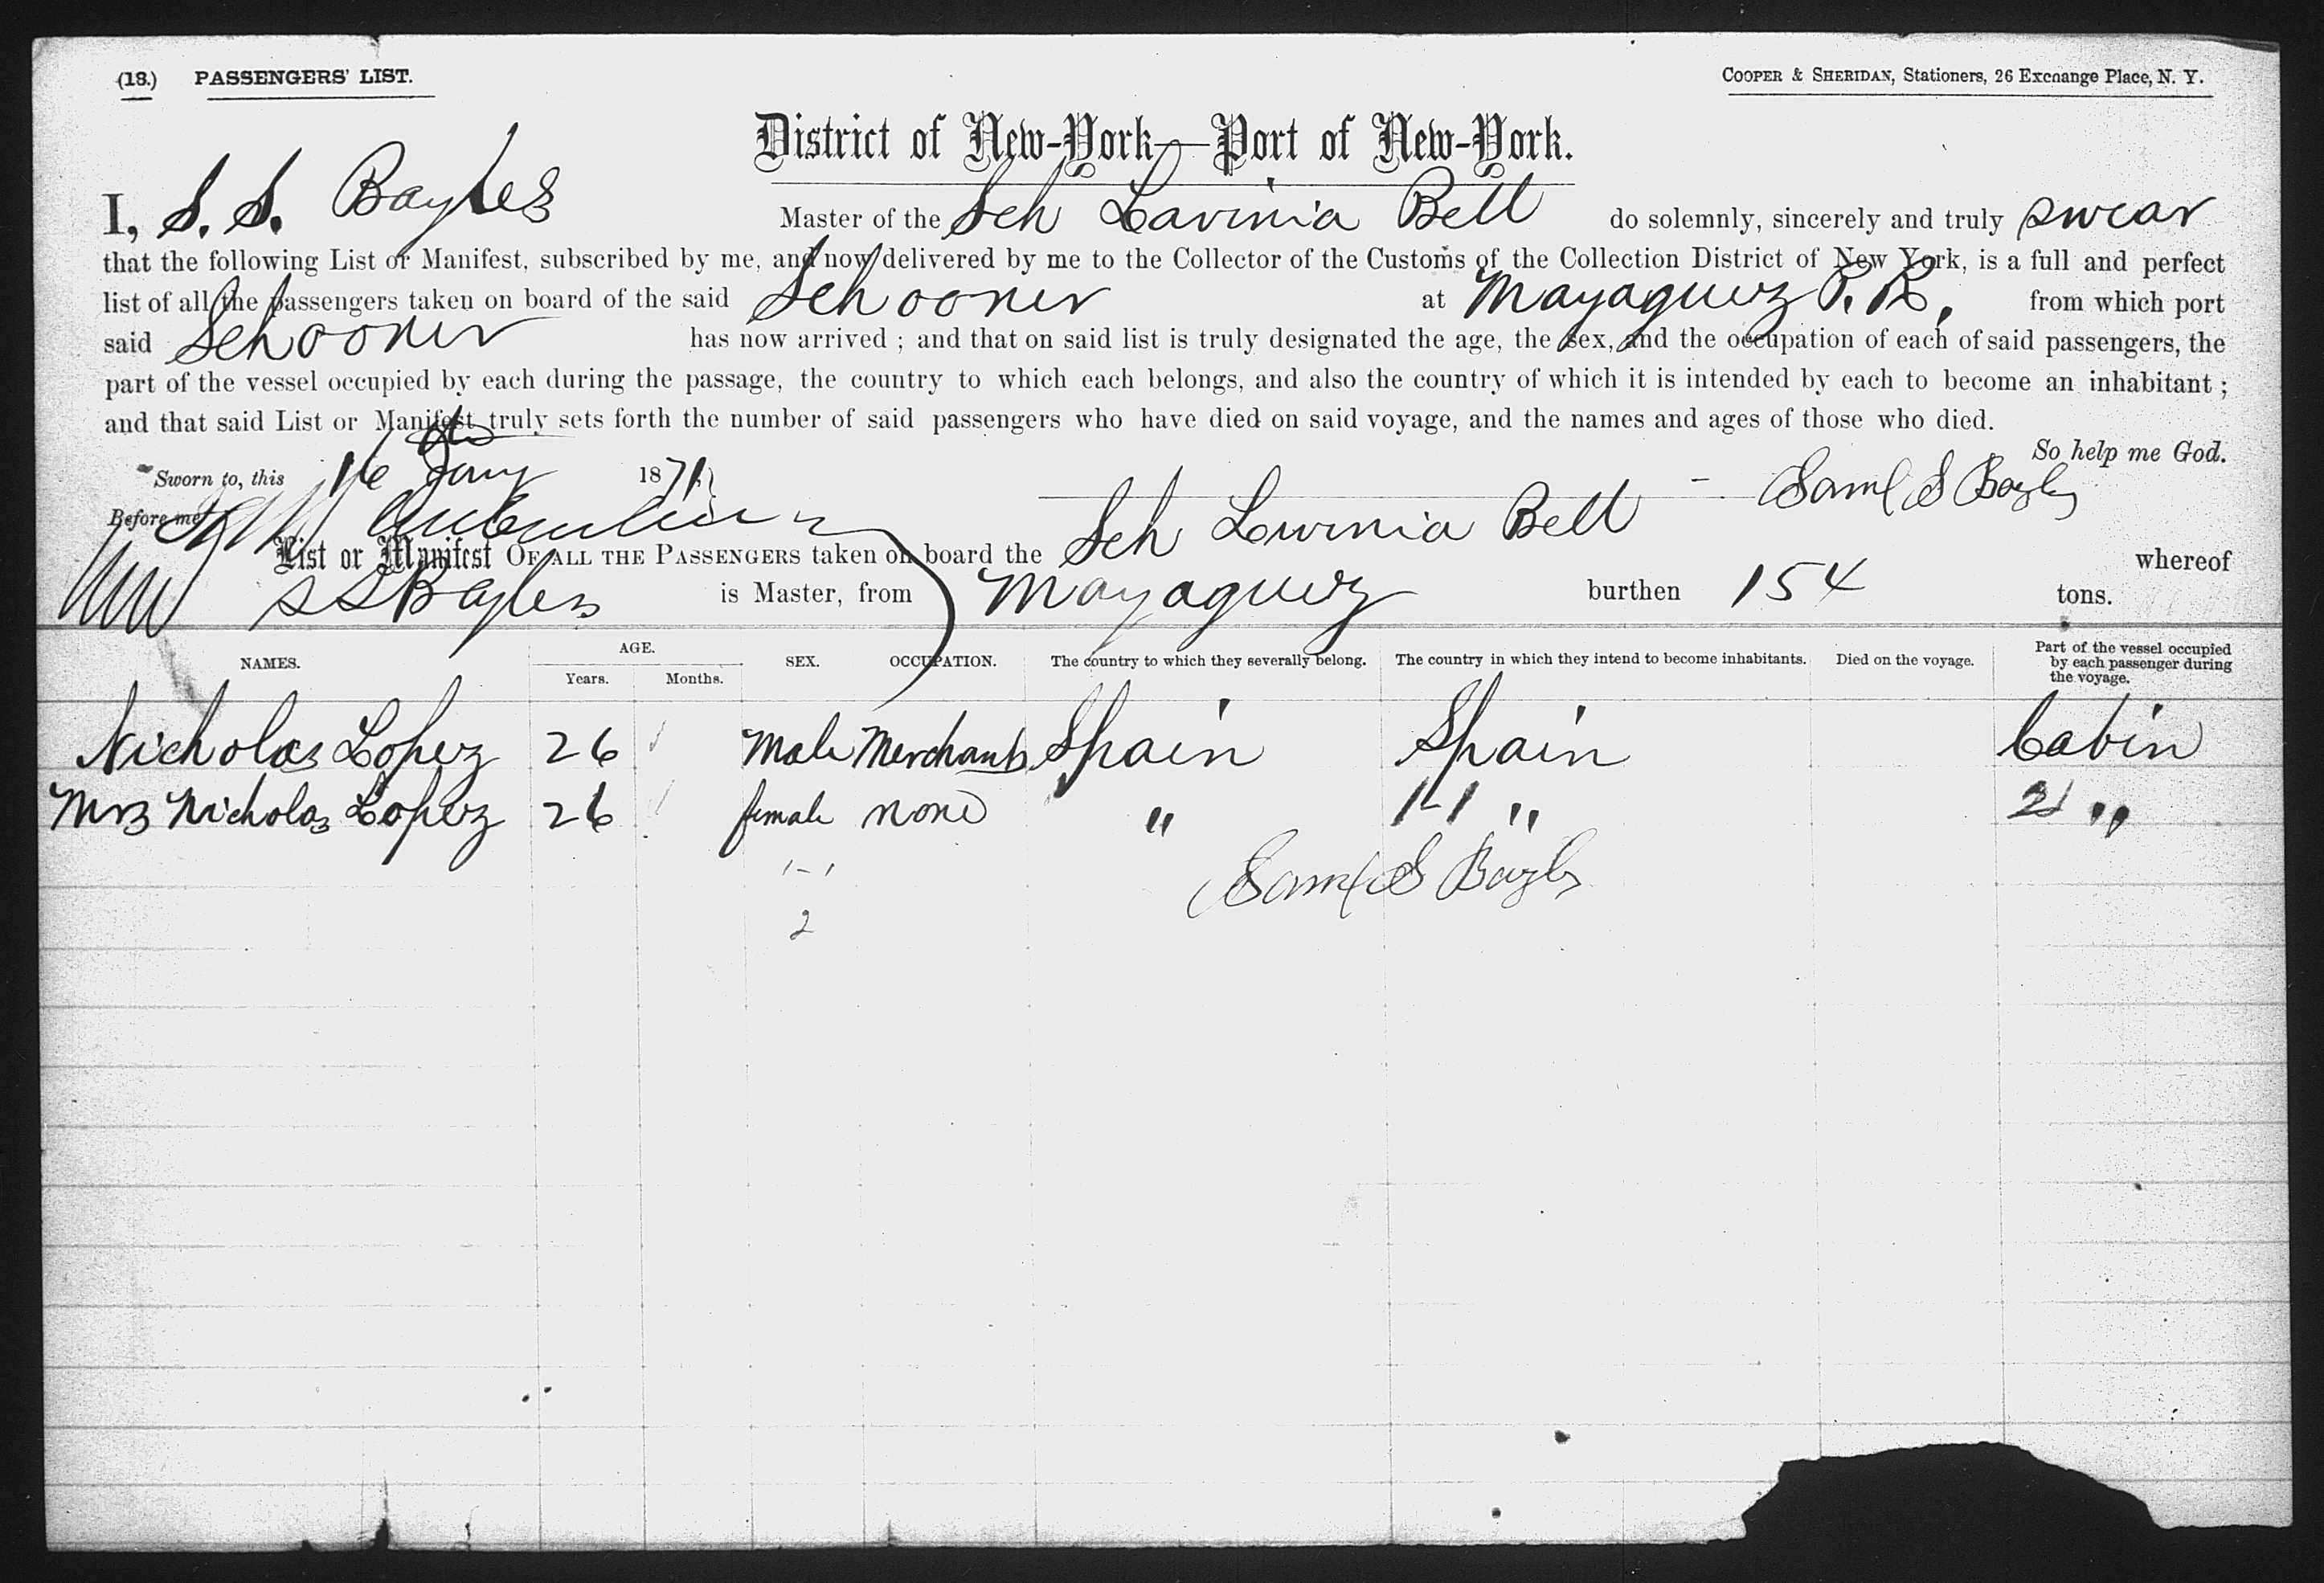 (18.) PASSENGERS' LIST. COOPER & SHERIDAN, Stationers, 26 Exchange Place, N. Y.
District of New-York—Port of New-York.
I, S. S. Bayles Master of the Sch Lavinia Bell do solemnly, sincerely and truly swear
that the following List or Manifest, subscribed by me, and now delivered by me to the Collector of the Customs of the Collection District of New York, is a full and perfect
list of all the passengers taken on board of the said Schooner at Mayaguez P. R. from which port
said Schooner has now arrived ; and that on said list is truly designated the age, the sex, and the occupation of each of said passengers, the
part of the vessel occupied by each during the passage, the country to which each belongs, and also the country of which it is intended by each to become an inhabitant ;
and that said List or Manifest truly sets forth the number of said passengers who have died on said voyage, and the names and ages of those who died.
So help me God.
Sworn to, this 16 Jany 1871 Saml S Bayles
Before me
List or Manifest OF ALL THE PASSENGERS taken on board the Sch Lavinia Bell whereof
S S Bayles is Master, from Mayaguez burthen 154 tons.
NAMES. AGE. Years. Months. SEX. OCCUPATION. The country to which they severally belong. The country in which they intend to become inhabitants. Died on the voyage. Part of the vessel occupied by each passenger during the voyage.
Nicholas Lopez 26 Male Merchant Spain Spain Cabin
Mrs Nicholas Lopez 26 female none " 1-1 " 2 "
1-1 Saml S Bayles
2